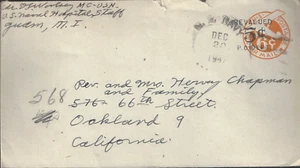 MC-USN.
U.S. Naval Hospital, Staff
Guam, M. I.
DEC
20
REVALUED
5¢
P.O. DEPT.
568
Rev. and Mrs. Henry Chapman
and Family,
5762 66th Street.
Oakland 9
California.